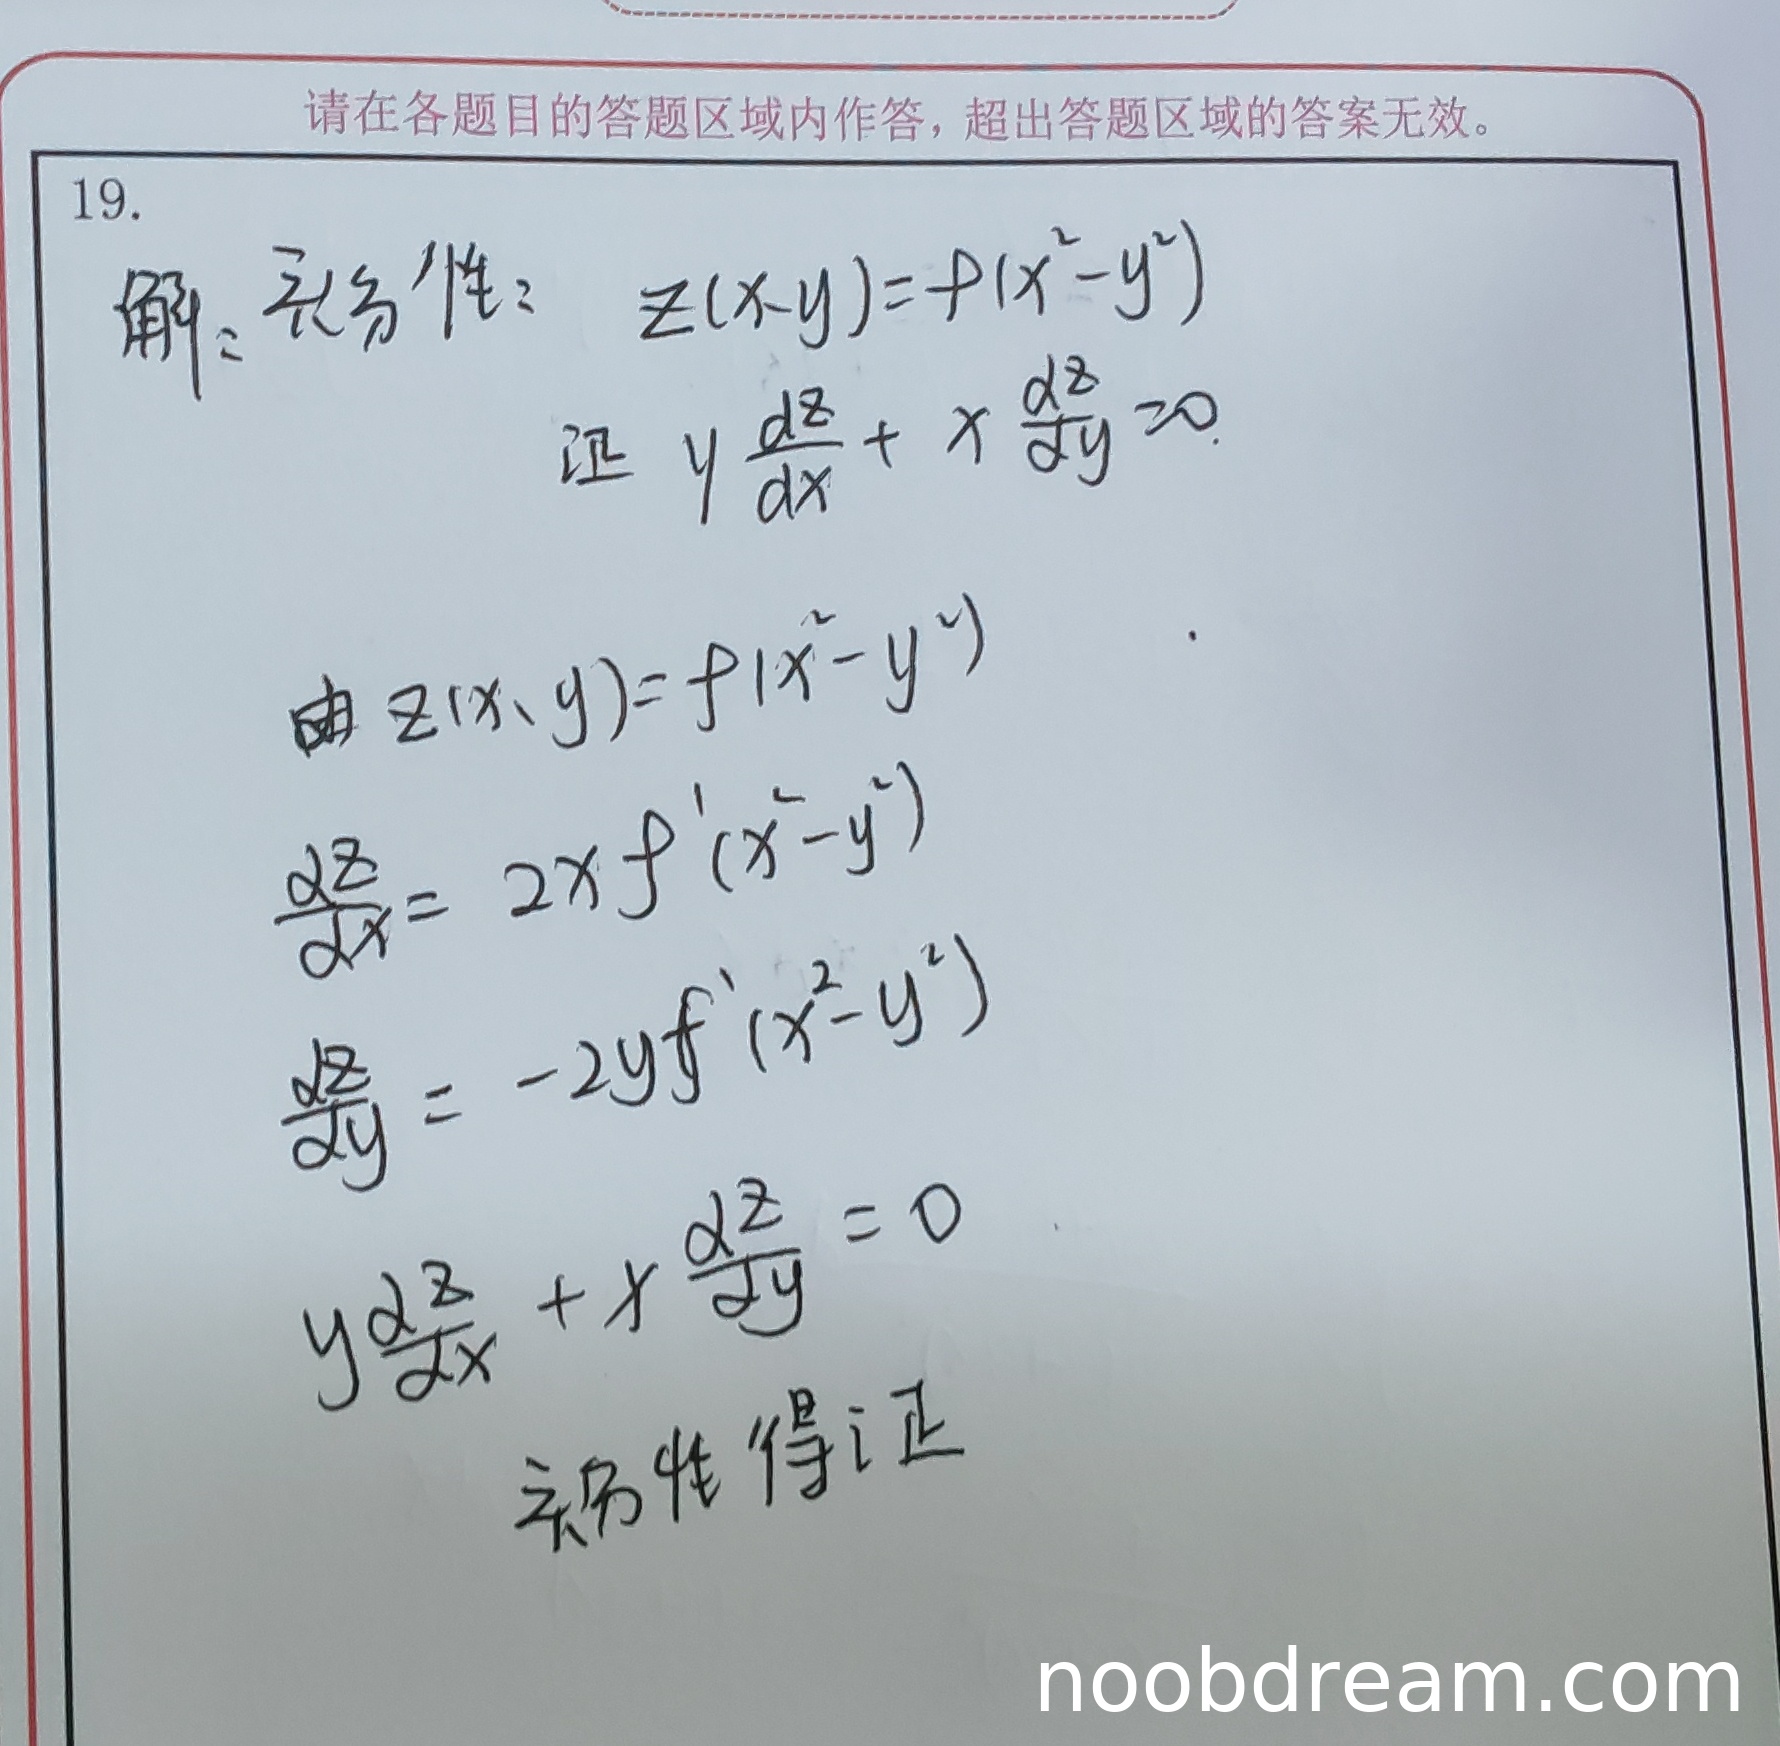 请在各题目的答题区域内作答，超出答题区域的答案无效。
19.
解: 充分性: z(x-y)=f(x²-y²)
证 y dz/dx + x dz/dy =0.
由 z(x、y)=f(x²-y²)
dz/dx = 2xf'(x²-y²)
dz/dy = -2yf'(x²-y²)
y dz/dx + x dz/dy = 0
充分性得证
noobdream.com